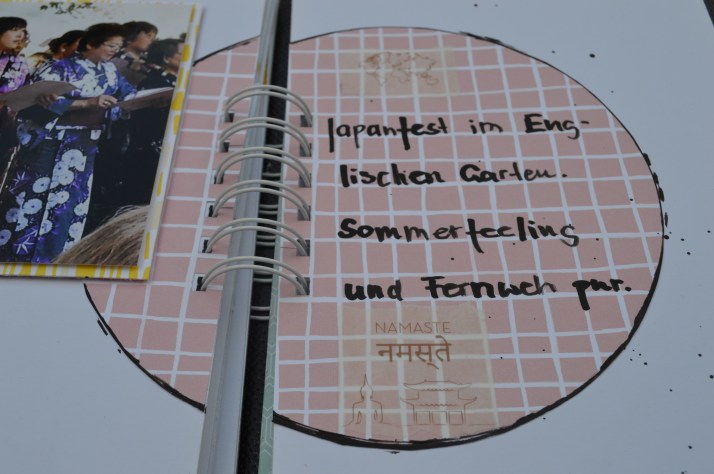 Japanfest im Eng-
lischen Garten.
Sommerfeeling
und Fernweh pur.
NAMASTE
नमस्ते